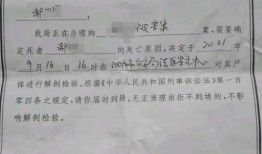 我局正在办理的 被害案 案,需要确
定死者 的死亡原因,决定于 2021 年
9 月 16 日 16 时在 中心 对其尸
体进行解剖检验。根据《中华人民共和国刑事诉讼法》第一百
零四条之规定,请你届时到场。无正当理由拒不到场的,不影
响解剖检验。